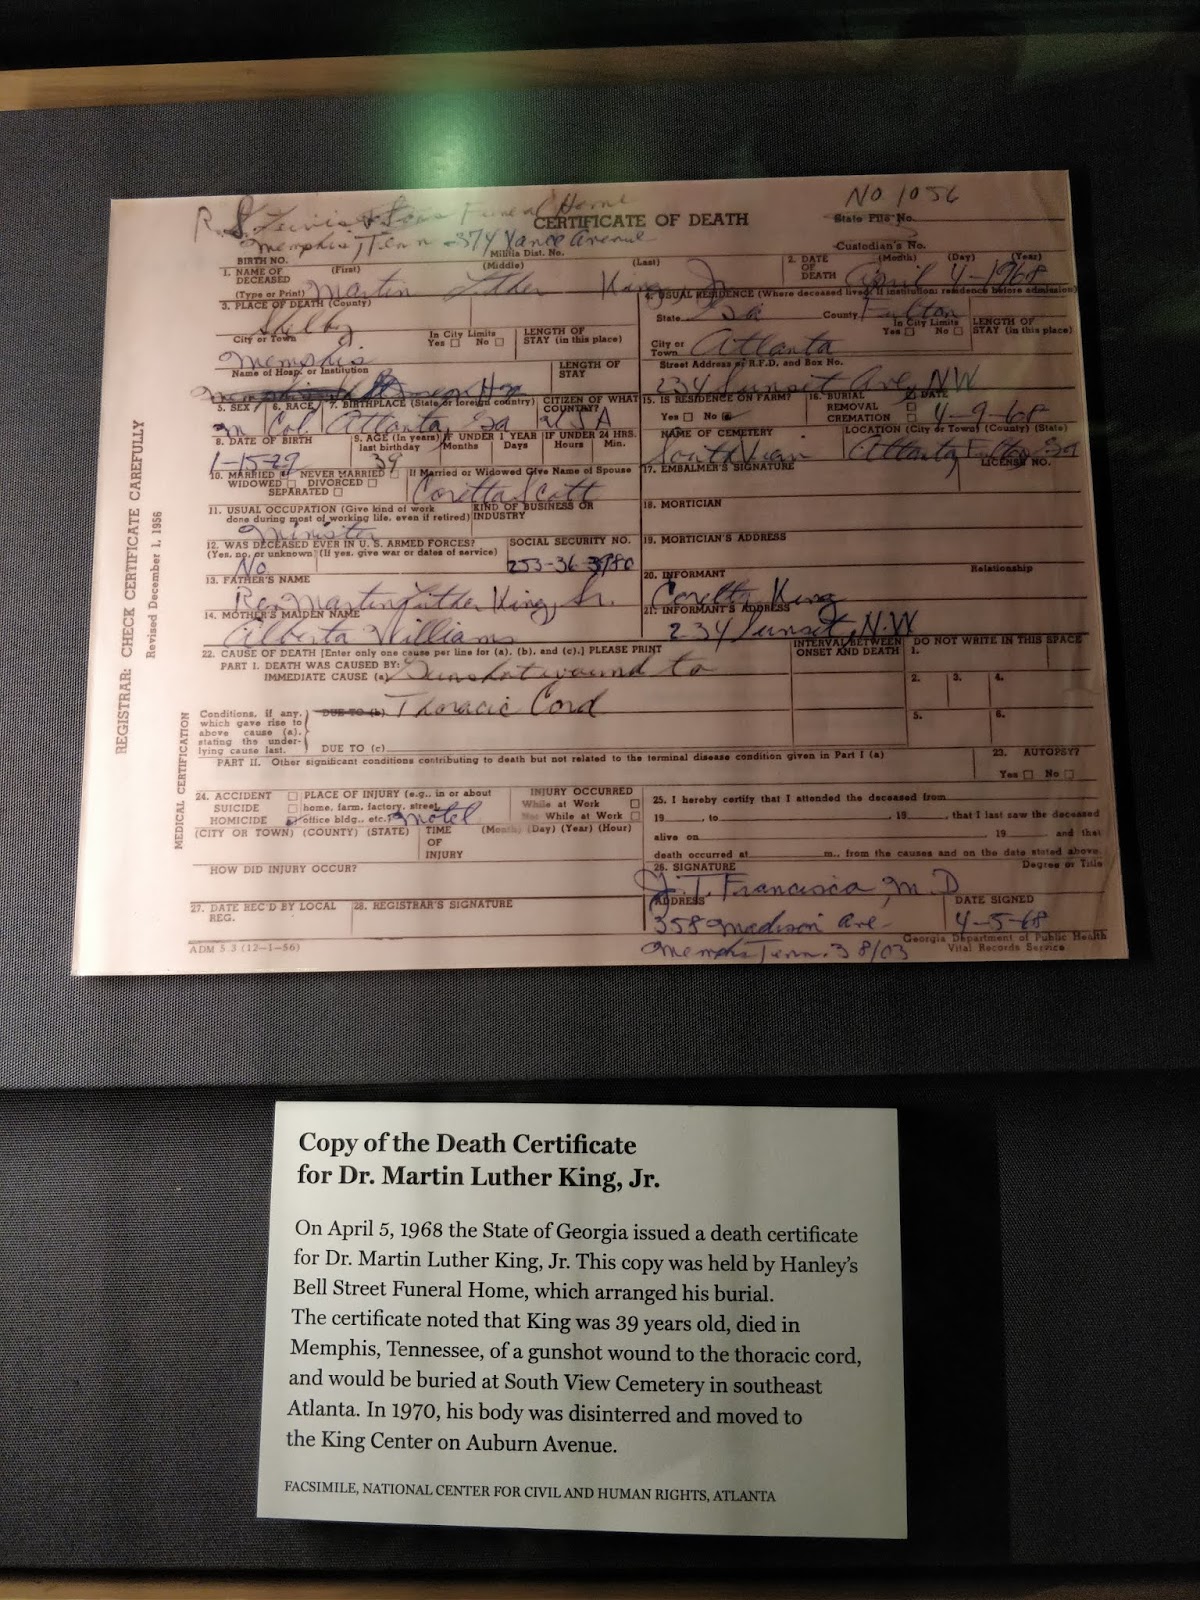 R. S. Lewis & Sons Funeral Home
Memphis, Tenn - 374 Vance Avenue
CERTIFICATE OF DEATH
NO 1056
State File No.
Custodian's No.
BIRTH NO.
Militia Dist. No.
1. NAME OF DECEASED (Type or Print) (First) (Middle) (Last)
Martin Luther King Jr
2. DATE OF DEATH (Month) (Day) (Year)
April 4-1968
3. PLACE OF DEATH (County)
Shelby
4. USUAL RESIDENCE (Where deceased lived. If institution: residence before admission)
State Ga County Fulton
City or Town In City Limits Yes No LENGTH OF STAY (in this place)
Memphis
City or Town Atlanta
In City Limits Yes No LENGTH OF STAY (in this place)
Name of Hosp. or Institution LENGTH OF STAY
Street Address or R.F.D. and Box No.
234 Sunset Ave, NW
5. SEX 6. RACE 7. BIRTHPLACE (State or foreign country) CITIZEN OF WHAT COUNTRY?
M Col Atlanta, Ga USA
15. IS RESIDENCE ON FARM? Yes No
16. BURIAL REMOVAL CREMATION DATE
4-9-68
8. DATE OF BIRTH 9. AGE (In years) last birthday IF UNDER 1 YEAR Months Days IF UNDER 24 HRS. Hours Min.
1-15-29 39
NAME OF CEMETERY LOCATION (City or Town) (County) (State)
South View Atlanta, Fulton, Ga
10. MARRIED NEVER MARRIED WIDOWED DIVORCED SEPARATED
If Married or Widowed Give Name of Spouse
Coretta Scott
17. EMBALMER'S SIGNATURE LICENSE NO.
11. USUAL OCCUPATION (Give kind of work done during most of working life, even if retired) KIND OF BUSINESS OR INDUSTRY
Minister
18. MORTICIAN
12. WAS DECEASED EVER IN U. S. ARMED FORCES? (Yes, no, or unknown) (If yes, give war or dates of service)
No
SOCIAL SECURITY NO.
19. MORTICIAN'S ADDRESS
13. FATHER'S NAME
Rev. Martin Luther King, Sr.
20. INFORMANT Relationship
Coretta King
14. MOTHER'S MAIDEN NAME
Alberta Williams
21. INFORMANT'S ADDRESS
234 Sunset, N.W
22. CAUSE OF DEATH [Enter only one cause per line for (a), (b), and (c).] PLEASE PRINT
INTERVAL BETWEEN ONSET AND DEATH
DO NOT WRITE IN THIS SPACE
1.
2. 3. 4.
5. 6.
PART I. DEATH WAS CAUSED BY:
IMMEDIATE CAUSE (a) Gunshot wound to
DUE TO (b) Thoracic Cord
Conditions, if any, which gave rise to above cause (a), stating the underlying cause last.
DUE TO (c)
PART II. Other significant conditions contributing to death but not related to the terminal disease condition given in Part I (a)
23. AUTOPSY? Yes No
24. ACCIDENT SUICIDE HOMICIDE
PLACE OF INJURY (e.g., in or about home, farm, factory, street, office bldg., etc.) Motel
INJURY OCCURRED While at Work Not While at Work
(CITY OR TOWN) (COUNTY) (STATE) TIME OF INJURY (Month) (Day) (Year) (Hour)
HOW DID INJURY OCCUR?
25. I hereby certify that I attended the deceased from
19 , to , 19 , that I last saw the deceased
alive on , 19 , and that
death occurred at m., from the causes and on the date stated above.
26. SIGNATURE Degree or Title
J. T. Francisco, M. D
ADDRESS DATE SIGNED
358 Madison Ave. 4-5-68
Memphis Tenn. 38103
27. DATE REC'D BY LOCAL REG.
28. REGISTRAR'S SIGNATURE
ADM 5 3 (12-1-56)
Georgia Department of Public Health
Vital Records Service
REGISTRAR: CHECK CERTIFICATE CAREFULLY
Revised December 1, 1956
MEDICAL CERTIFICATION
Copy of the Death Certificate
for Dr. Martin Luther King, Jr.
On April 5, 1968 the State of Georgia issued a death certificate
for Dr. Martin Luther King, Jr. This copy was held by Hanley's
Bell Street Funeral Home, which arranged his burial.
The certificate noted that King was 39 years old, died in
Memphis, Tennessee, of a gunshot wound to the thoracic cord,
and would be buried at South View Cemetery in southeast
Atlanta. In 1970, his body was disinterred and moved to
the King Center on Auburn Avenue.
FACSIMILE, NATIONAL CENTER FOR CIVIL AND HUMAN RIGHTS, ATLANTA